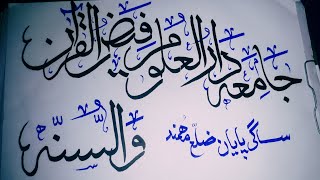 جامعہ دارالعلوم فیض القرآن
والسنّہ
ساگی پایان ضلع مہمند